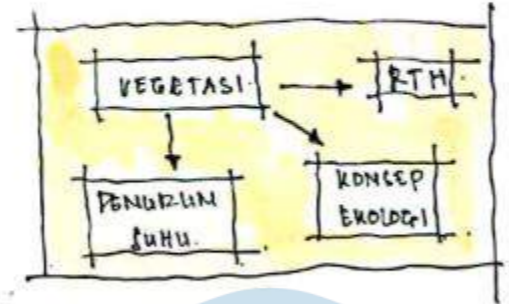 VEGETASI.
RTH.
PENURUN
SUHU.
KONSEP
EKOLOGI